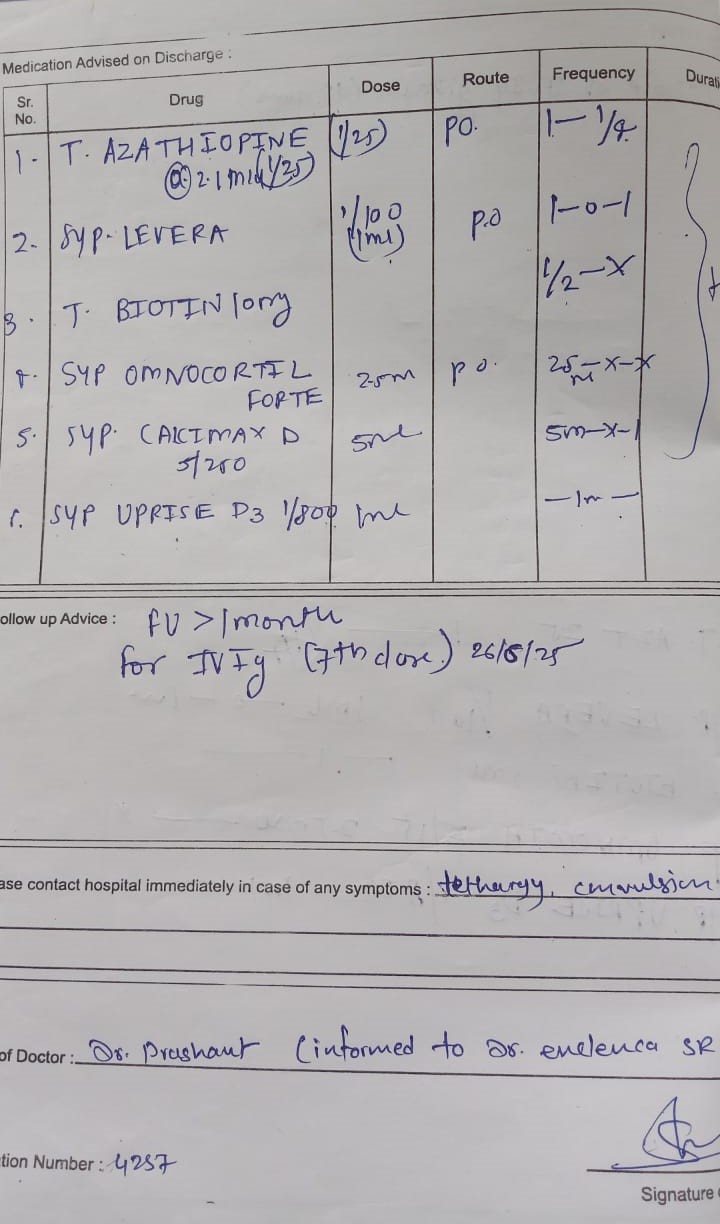 Medication Advised on Discharge :
Sr. No. Drug Dose Route Frequency Durati
1- T. AZATHIOPINE (1/25) PO. 1- 1/2
@ 2.1 (1/25)
2- SYP- LEVERA 1/100 (1ml) P.O 1-0-1
3. T. BIOTIN 10mg 1/2-X
4. SYP OMNOCORTIL FORTE 2.5m PO. 2.5 ml-X-X
5. SYP. CALCIMAX D 5ml 5m-X-1
5/250
SYP UPRISE D3 1/800 1ml -1m-
ollow up Advice : FU > 1 month
for IVIg (7th dose) 26/6/25
ase contact hospital immediately in case of any symptoms : lethargy, convulsion
of Doctor : Dr. Prashant (informed to Dr. SR
tion Number : 4257
Signature